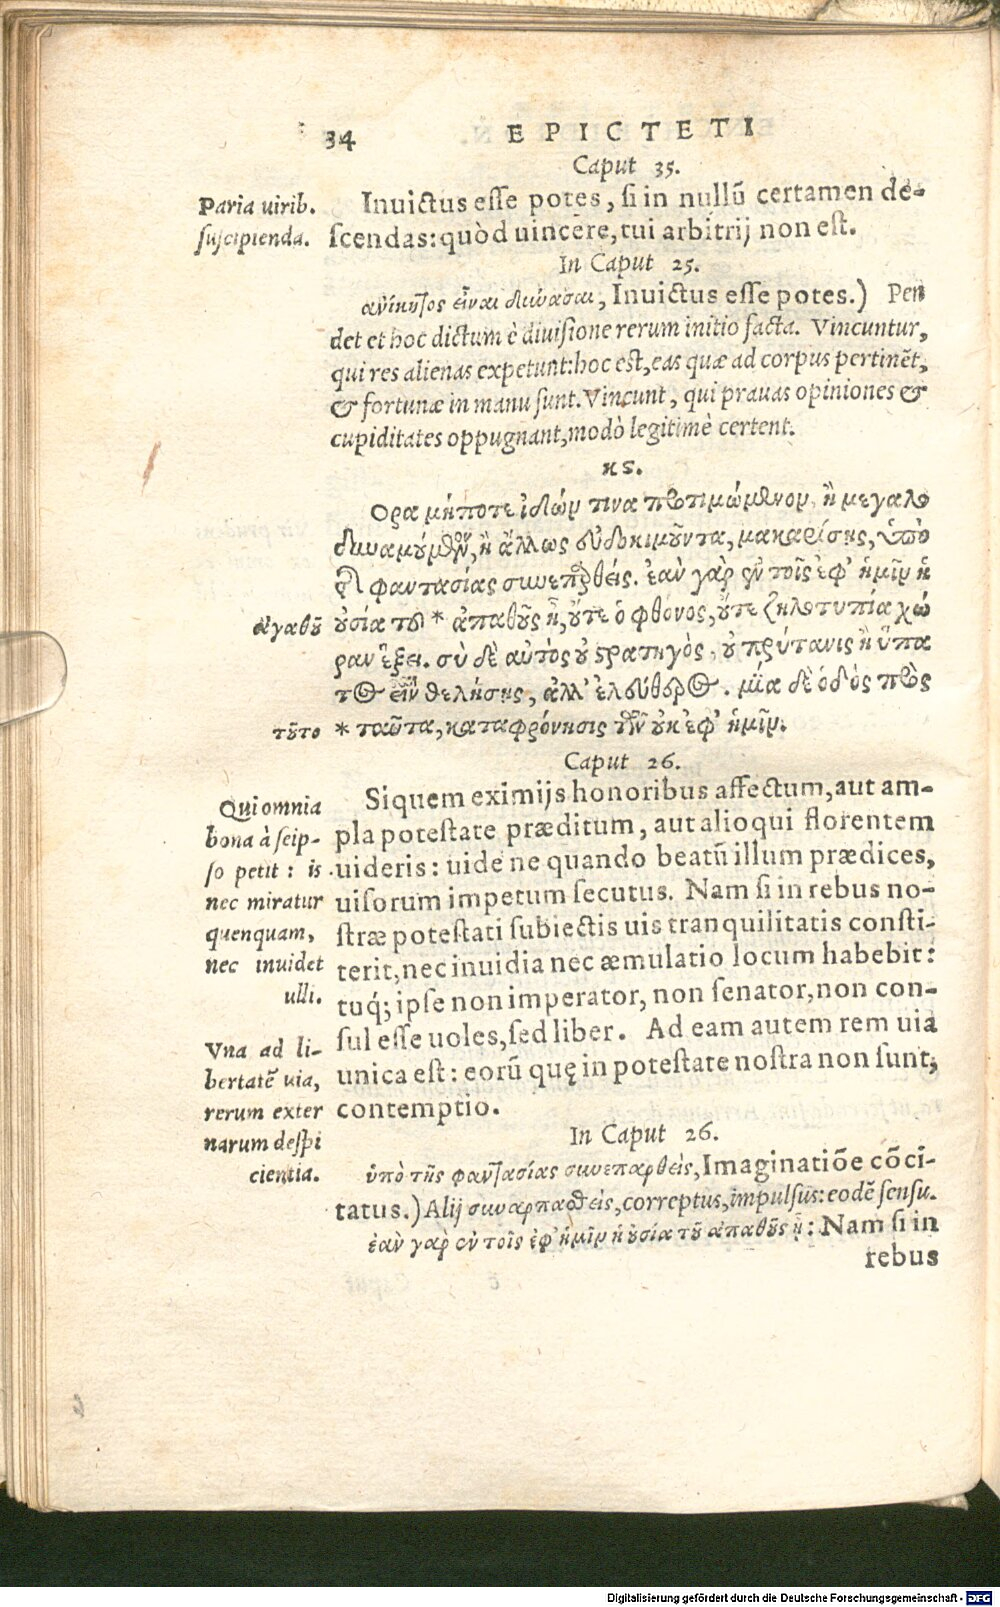 34 EPICTETI
Caput 35.
Paria uirib.
suscipienda.
Inuictus esse potes, si in nullũ certamen de-
scendas: quòd uincere, tui arbitrij non est.
In Caput 25.
ἀνίκητος εἶναι δύνασαι, Inuictus esse potes.) Pen
det et hoc dictum è diuisione rerum initio facta. Vincuntur,
qui res alienas expetunt: hoc est, eas quæ ad corpus pertinẽt,
& fortunæ in manu sunt. Vincunt, qui prauas opiniones &
cupiditates oppugnant, modò legitimè certent.
κς.
Ορα μήποτε ἰδών τινα προτιμώμενον, ἢ μεγαλο
δυναμούμενον, ἢ ἄλλως εὐδοκιμοῦντα, μακαρίσῃς, ὑπὸ
τῆς φαντασίας συνεπαρθείς. ἐὰν γὰρ ἐν τοῖς ἐφ' ἡμῖν ἡ
ἀγαθοῦ
οὐσία τοῦ * ἀπαθοῦς ᾖ, οὔτε ὁ φθόνος, οὔτε ζηλοτυπία χώ
ραν ἕξει. σὺ δὲ αὐτὸς οὐ στρατηγὸς, οὐ πρύτανις ἢ ὕπα
τος εἶναι θελήσῃς, ἀλλ' ἐλεύθερος. μία δὲ ὁδὸς πρὸς
τοῦτο
* ταῦτα, καταφρόνησις τῶν οὐκ ἐφ' ἡμῖν.
Caput 26.
Qui omnia
bona à seip-
so petit: is
nec miratur
quenquam,
nec inuidet
ulli.
Siquem eximijs honoribus affectum, aut am-
pla potestate præditum, aut alioqui florentem
uideris: uide ne quando beatũ illum prædices,
uisorum impetum secutus. Nam si in rebus no-
stræ potestati subiectis uis tranquilitatis consti-
terit, nec inuidia nec æmulatio locum habebit:
tuq́; ipse non imperator, non senator, non con-
sul esse uoles, sed liber. Ad eam autem rem uia
unica est: eorũ quę in potestate nostra non sunt,
contemptio.
Vna ad li-
bertatẽ uia,
rerum exter
narum despi
cientia.
In Caput 26.
ὑπὸ τῆς φαντασίας συνεπαρθεὶς, Imaginatiõe cõci-
tatus.) Alij συναρπαθεὶς, correptus, impulsus: eodẽ sensu.
ἐὰν γὰρ ἐν τοῖς ἐφ' ἡμῖν ἡ οὐσία τοῦ ἀπαθοῦς ᾖ: Nam si in
rebus
Digitalisierung gefördert durch die Deutsche Forschungsgemeinschaft - DFG